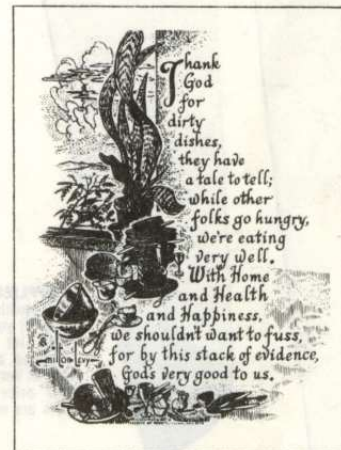 Thank
God
for
dirty
dishes,
they have
a tale to tell;
while other
folks go hungry,
we're eating
very well.
With Home
and Health
and Happiness,
we shouldn't want to fuss,
for by this stack of evidence,
God's very good to us.